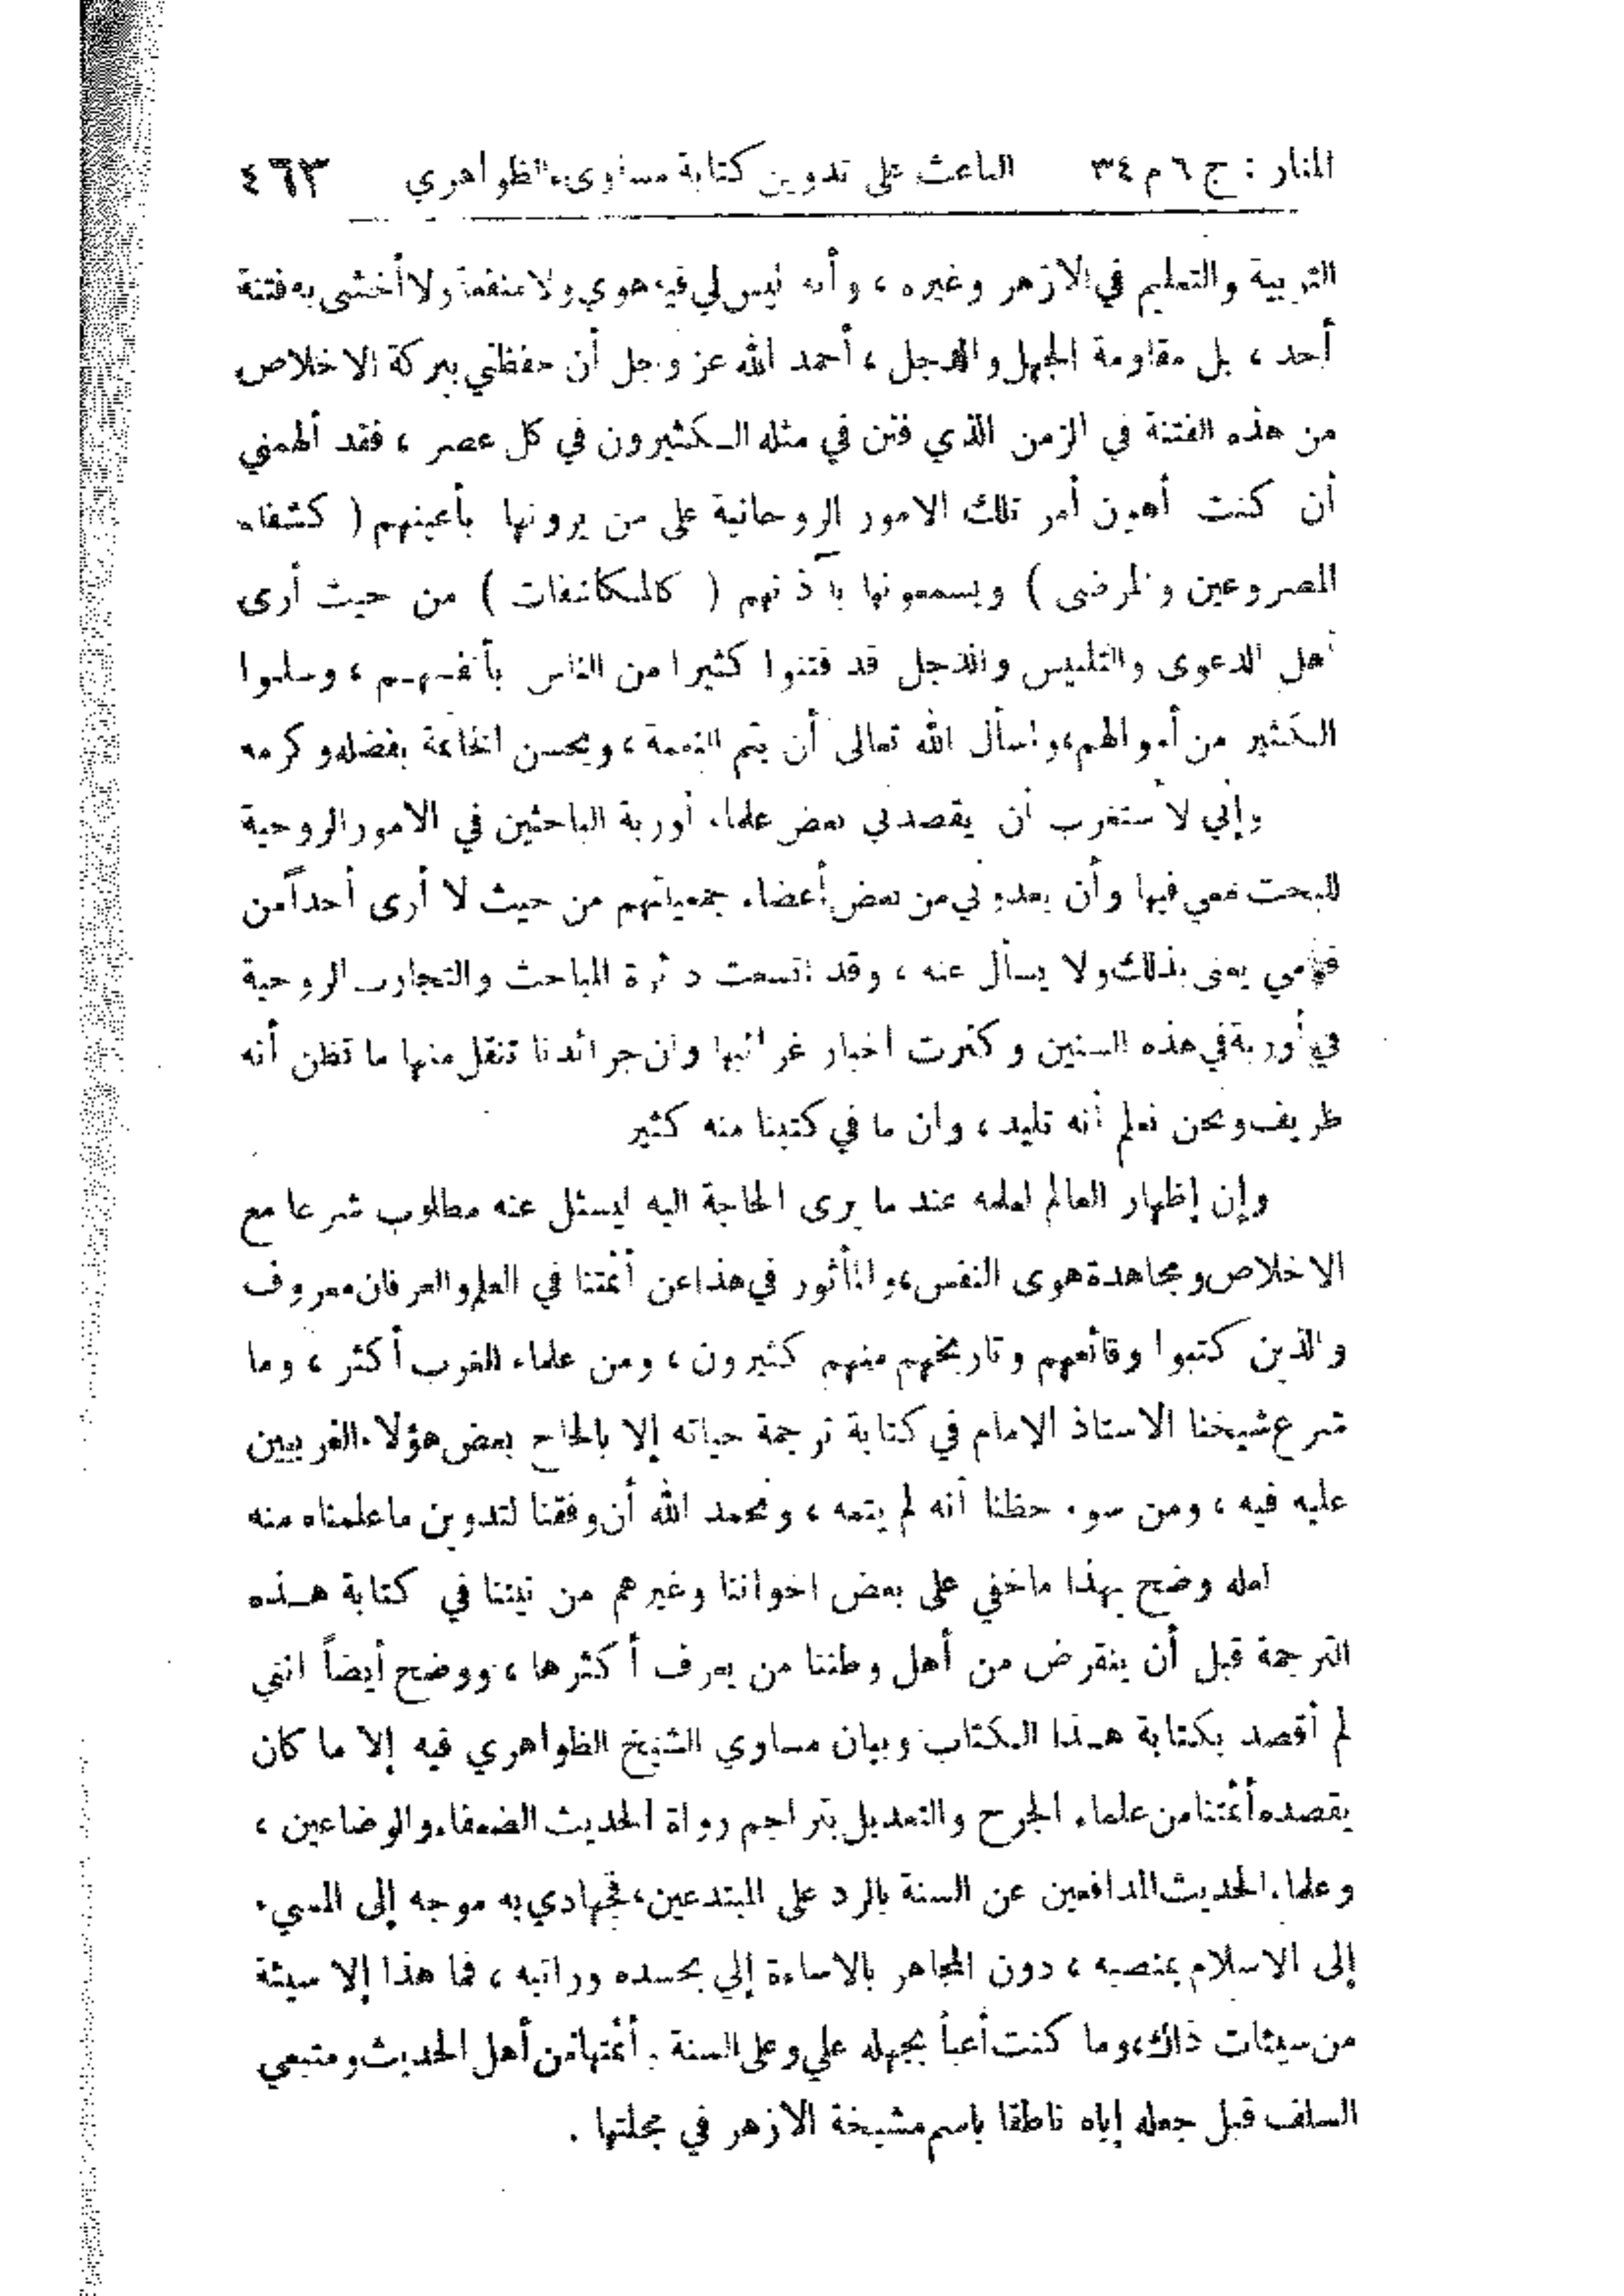 المنار : ج ٦ م ٣٤ الباعث على تدوين كتابة مساوىء الظواهري ٤٦٣
التربية والتعليم في الازهر وغيره ، وأنه ليس لي فيه هوى ولا منفعة ولا أخشى به فتنة
أحد ، بل مقاومة الجهل والدجل ، أحمد الله عز وجل أن حفظني ببركة الاخلاص
من هذه الفتنة في الزمن الذي فتن في مثله الكثيرون في كل عصر ، فقد ألهمني
أن كنت أهون أمر تلك الامور الروحانية على من يرونها بأعينهم ( كشفاء
المصروعين والمرضى ) ويسمعونها بآذنهم ( كالمكاشفات ) من حيث أرى
أهل الدعوى والتلبيس والدجل قد فتنوا كثيرا من الناس بأنفسهم ، وسلبوا
الكثير من أموالهم ، واسأل الله تعالى أن يتم النعمة ، ويحسن الخاتمة بفضله وكرمه
وإني لأستغرب أن يقصدني بعض علماء أوربة الباحثين في الامور الروحية
للبحث معي فيها وأن يعدوني من بعض أعضاء جمعياتهم من حيث لا أرى أحداً من
قومي يعنى بذلك ولا يسأل عنه ، وقد اتسعت دائرة المباحث والتجارب الروحية
في أوربة في هذه السنين وكثرت أخبار غرائبها وان جرائدنا تنقل منها ما تظن أنه
طريف ونحن نعلم أنه تليد ، وان ما في كتبنا منه كثير
وإن إظهار العالم لعلمه عند ما يرى الحاجة اليه ليسئل عنه مطلوب شرعا مع
الاخلاص ومجاهدة هوى النفس ، والمأثور في هذا عن أئمتنا في العلم والعرفان معروف
والذين كتبوا وقائعهم وتاريخهم منهم كثيرون ، ومن علماء الغرب أكثر ، وما
شرع شيخنا الاستاذ الامام في كتابة ترجمة حياته إلا بالحاح بعض هؤلاء الغربيين
عليه فيه ، ومن سوء حظنا أنه لم يتمه ، ونحمد الله أن وفقنا لتدوين ما علمناه منه
لعله وضح بهذا ما خفي على بعض اخواننا وغيرهم من نيتنا في كتابة هذه
الترجمة قبل أن ينقرض من أهل وطننا من يعرف أكثرها ، ووضح أيضاً انني
لم أقصد بكتابة هذا الكتاب وبيان مساوي الشيخ الظواهري فيه إلا ما كان
يقصده أئمتنا من علماء الجرح والتعديل بتراجم رواة الحديث الضعفاء والوضاعين ،
وعلماء الحديث المدافعين عن السنة بالرد على المبتدعين ، فجهادي به موجه إلى المسيء
إلى الاسلام بمنصبه ، دون المجاهر بالاساءة إلي بحسده وراتبه ، فما هذا إلا سيئة
من سيئات ذاك ، وما كنت أعبأ بجهله علي وعلى السنة وأئمتها من أهل الحديث ومتبعي
السلف قبل جعله إياه ناطقا باسم مشيخة الازهر في مجلتها .